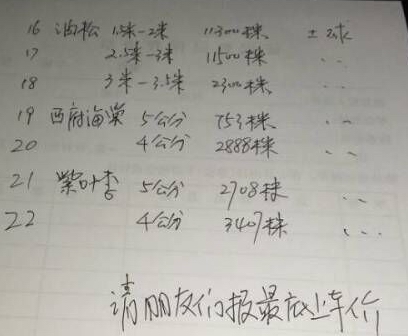 16 油松 1.5米-2米 11300株 土球
17 2.5米-3米 11500株 〃
18 3米-3.5米 2300株 〃
19 西府海棠 5公分 753株 〃
20 4公分 2888株 〃
21 紫叶李 5公分 2708株 〃
22 4公分 3407株 〃
请朋友们报最底上车价